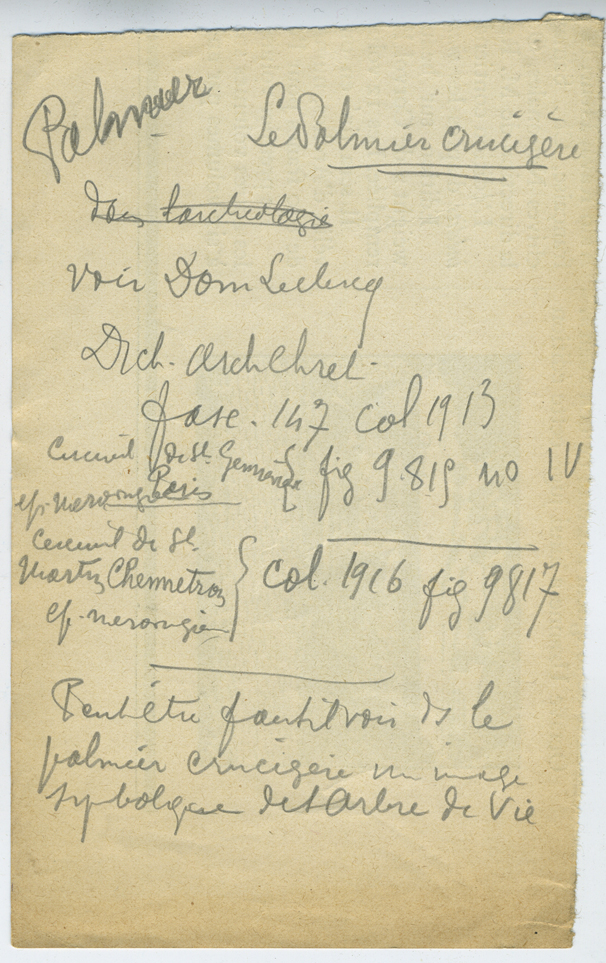 Palmier
Le Palmier crucigère
dans l'archéologie
voir Dom Leclercq
Dich. arch Chret.
fasc. 147 col 1913
Cercueil de St. Germain
Paris
ep. merovingie
fig 9.819 no IV
Cercueil de St.
Martin Chennetron
ep. merovingie
col. 1916 fig 9817
Peut être faut il voir ds le
palmier crucigère un image
symbolique de l'Arbre de Vie